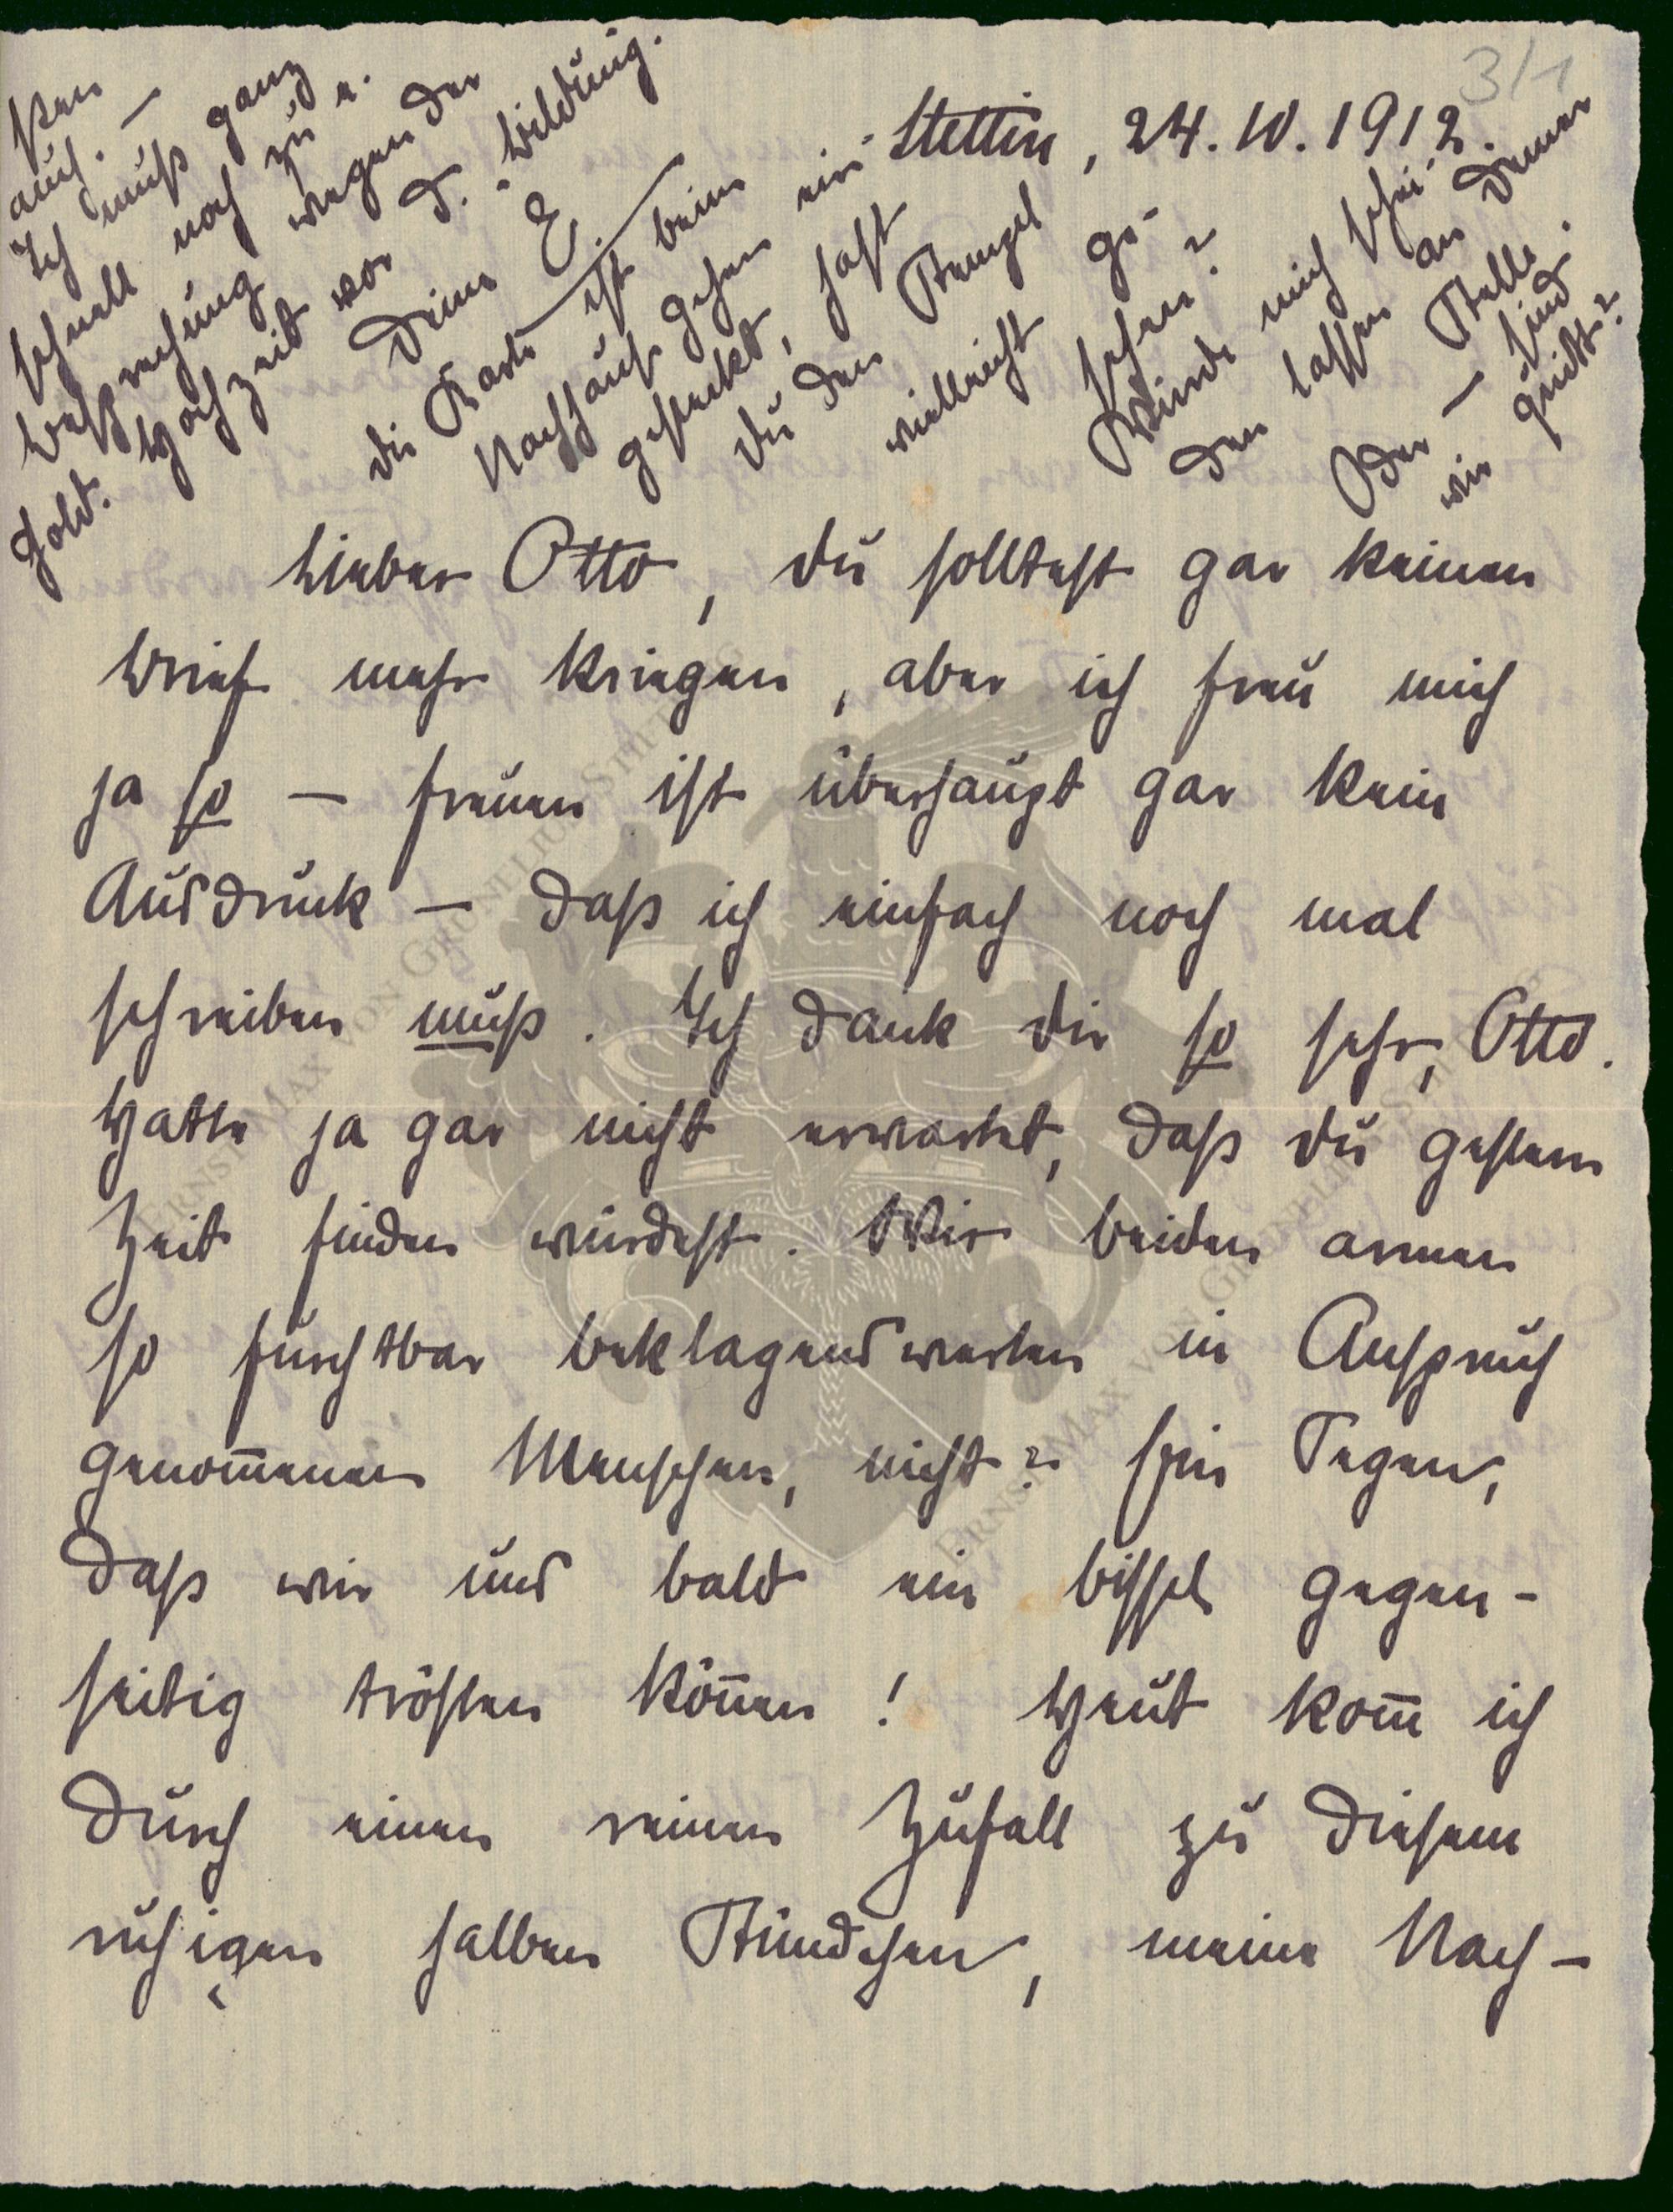 3/1
Stettin, 24.10.1912.
Lieber Otto, du solltest gar keinen
Brief mehr kriegen, aber ich freu mich
ja so — freuen ist überhaupt gar kein
Ausdruck — daß ich einfach noch mal
schreiben muß. Ich dank dir so sehr, Otto.
Hatte ja gar nicht erwartet, daß du gestern
Zeit finden würdest. Wir beiden armen
so furchtbar beklagenswerten in Anspruch
genom̄enen Menschen, nicht? Ein Segen,
daß wir uns bald ein bissel gegen-
seitig trösten kön̄en! Heut kom̄ ich
durch einen reinen Zufall zu diesem
ruhigen halben Stündchen, meine Nach-
sten
auch. —
Ich muß ganz
schnell noch zu e.
Besprechung wegen der
gold. Hochzeit vor d. Bildung.
Deine E.
die Karte ist beim
Nachhaus gehen ein-
gesteckt, hast
du den Stempel
vielleicht ge-
sehen?
Würde mich schei-
den lassen an Deiner
Stelle.
Oder — sind
wir quitt?
ERNST MAX VON GRUMELIUS STIFTUNG